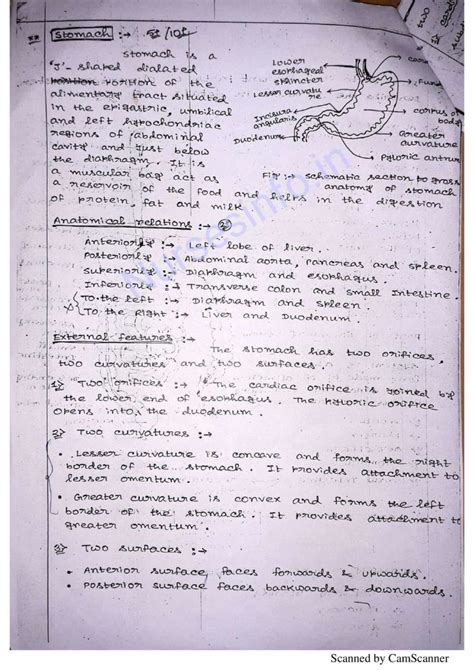 Stomach :→
Stomach is a
'J'- shaped dialated
portion portion of the
alimentary tract situated
in the epigastric, umbilical
and left hypochondriac
regions of abdominal
cavity and just below
the diaphragm. It is
a muscular bag act as
a reservoir of the food and helps in the digestion
of protein, fat and milk
Lower
esophageal
sphincter
Lesser curvatu
re
Incisura
angularis
Duodenum
Fund
corpus or
body
Greater
curvature
Pyloric antrum
Fig :- schematic section to gross
anatomy of stomach
Anatomical relations :→
Anteriorly :→ Left lobe of liver.
Posteriorly :→ Abdominal aorta, pancreas and spleen.
superiorly :→ Diaphragm and esophagus.
Inferiorly :→ Transverse colon and small Intestine.
To the left :→ Diaphragm and spleen
To the Right :→ Liver and Duodenum.
External features :→
The stomach has two orifices,
two curvatures and two surfaces.
1) Two orifices :→ The cardiac orifice is joined by
the lower end of esophagus. The pyloric orifice
opens into the duodenum.
2) Two curvatures :→
• Lesser curvature is concave and forms the right
border of the stomach. It provides attachment to
lesser omentum.
• Greater curvature is convex and forms the left
border of the stomach. It provides attachment to
greater omentum.
3) Two surfaces :→
• Anterior surface faces forwards & upwards.
• Posterior surface faces backwards & downwards.
nursesinfo.in
Scanned by CamScanner